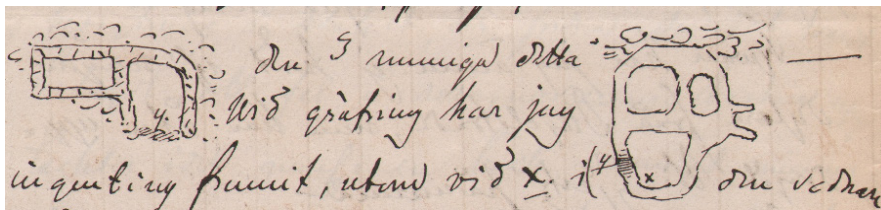 den 3 rumiga detta
Vid gräfning har jag
ingenting funnit, utom vid x. i (y den sednare